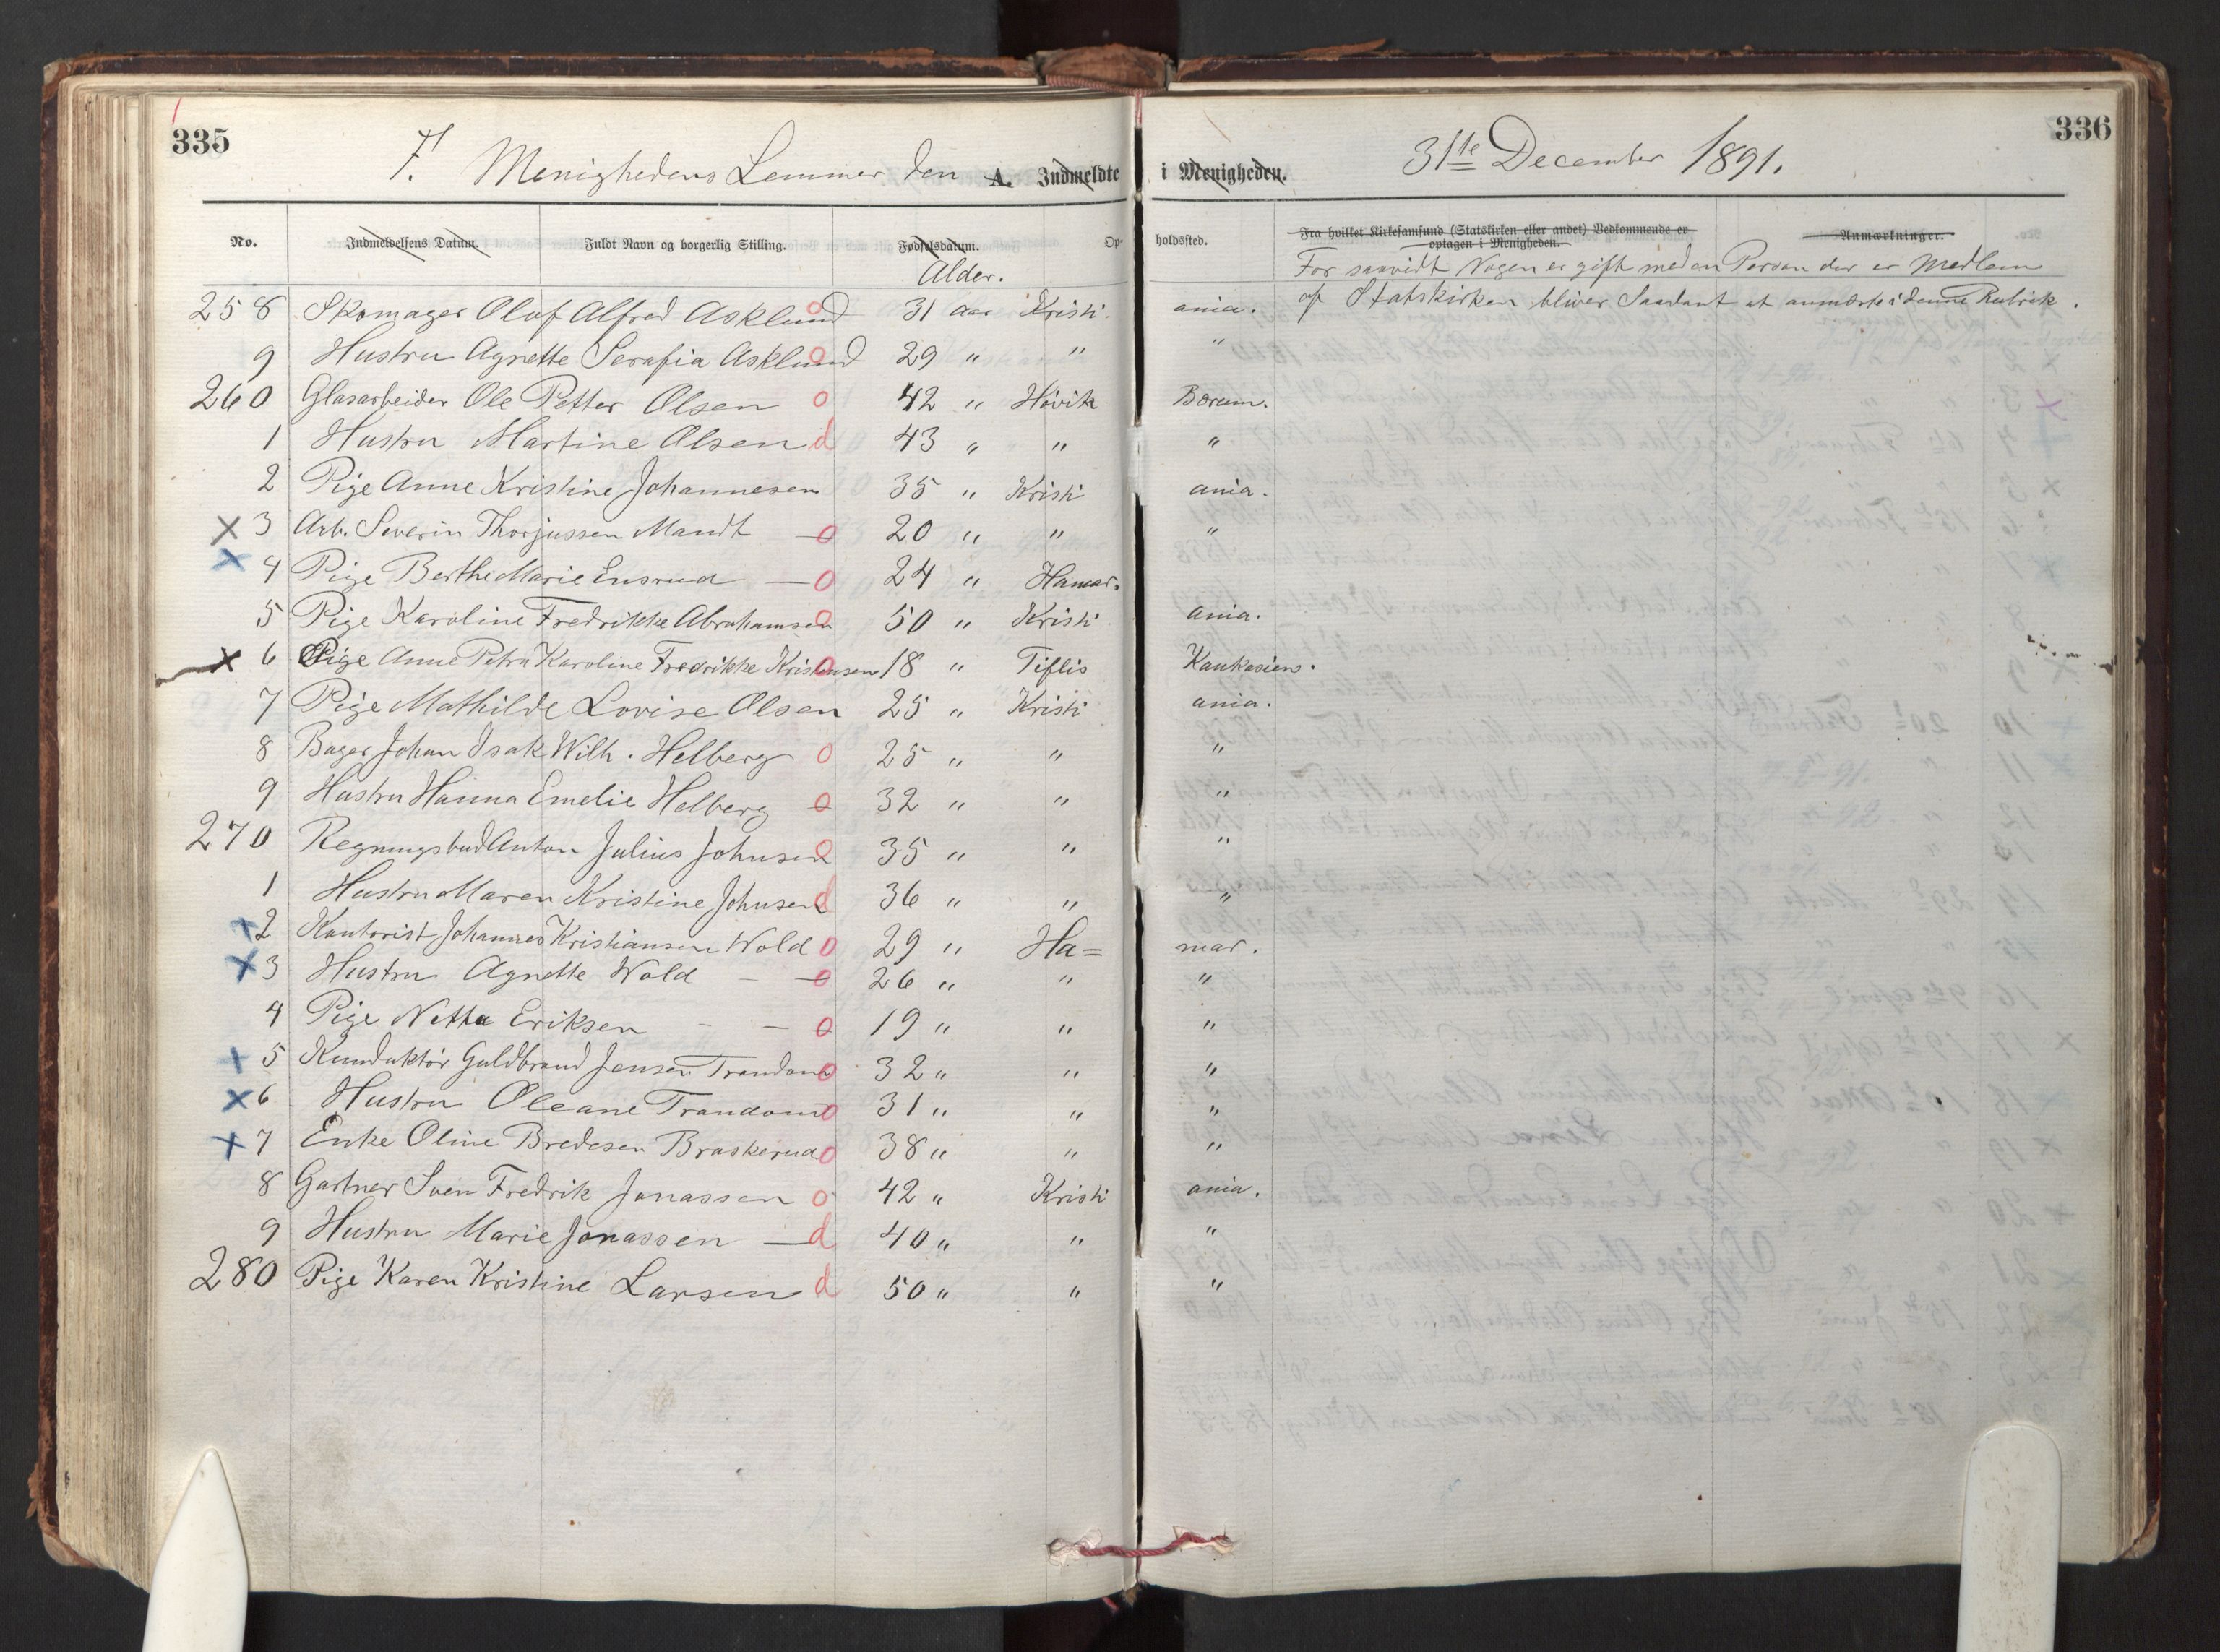 335
336
F. Menighedens Lemmer den 31te December 1891.
A. Indmeldte i Menigheden.
No. Indmeldelsens Datum. Fuldt Navn og borgerlig Stilling. Fødselsdatum. Op- holdssted. Fra hvilket Kirkesamfund (Statskirken eller andet) Vedkommende er optagen i Menigheden. Anmærkninger.
Alder. For saavidt Nogen er gift med en Person der er Medlem
af Statskirken bliver Saadant at anmærke i denne Rubrik.
258 Skomager Olof Alfred Asklund o 31 aar Kristi ania.
9 Hustru Agnette Serafia Asklund o 29 " " "
260 Glasarbeider Ole Petter Olsen o 42 " Høvik Bærum.
1 Hustru Martine Olsen d 43 " " "
2 Pige Anne Kristine Johannesen 35 " Kristi ania.
X 3 Arb. Severin Thorjussen Mandt — o 20 " " "
X 4 Pige Berthe Marie Ensrud — o 24 " Hamar.
5 Pige Karoline Fredrikke Abrahamsen o 50 " Kristi ania.
X 6 Pige Anne Petra Karoline Fredrikke Kristensen o 18 " Tiflis Kaukasien.
7 Pige Mathilde Lovise Olsen 25 " Kristi ania.
8 Bager Johan Isak Wilh. Helberg o 25 " " "
9 Hustru Hanna Emelie Helberg o 32 " " "
270 Regningsbud Anton Julius Johnsen o 35 " " "
1 Hustru Maren Kristine Johnsen d 36 " " "
X 2 Kontorist Johannes Kristiansen Wold o 29 " Ha= mar.
X 3 Hustru Agnette Wold — — o 26 " " "
4 Pige Netta Eriksen — — o 19 " " "
X 5 Kunduktør Guldbrand Jensen Trandom o 32 " " "
X 6 Hustru Oleane Trandom o 31 " " "
X 7 Enke Oline Bredesen Braskerud o 38 " " "
8 Gartner Sven Fredrik Jonassen o 42 " Kristi ania.
9 Hustru Marie Jonassen — d 40 " " "
280 Pige Karen Kristine Larsen d 50 " " "